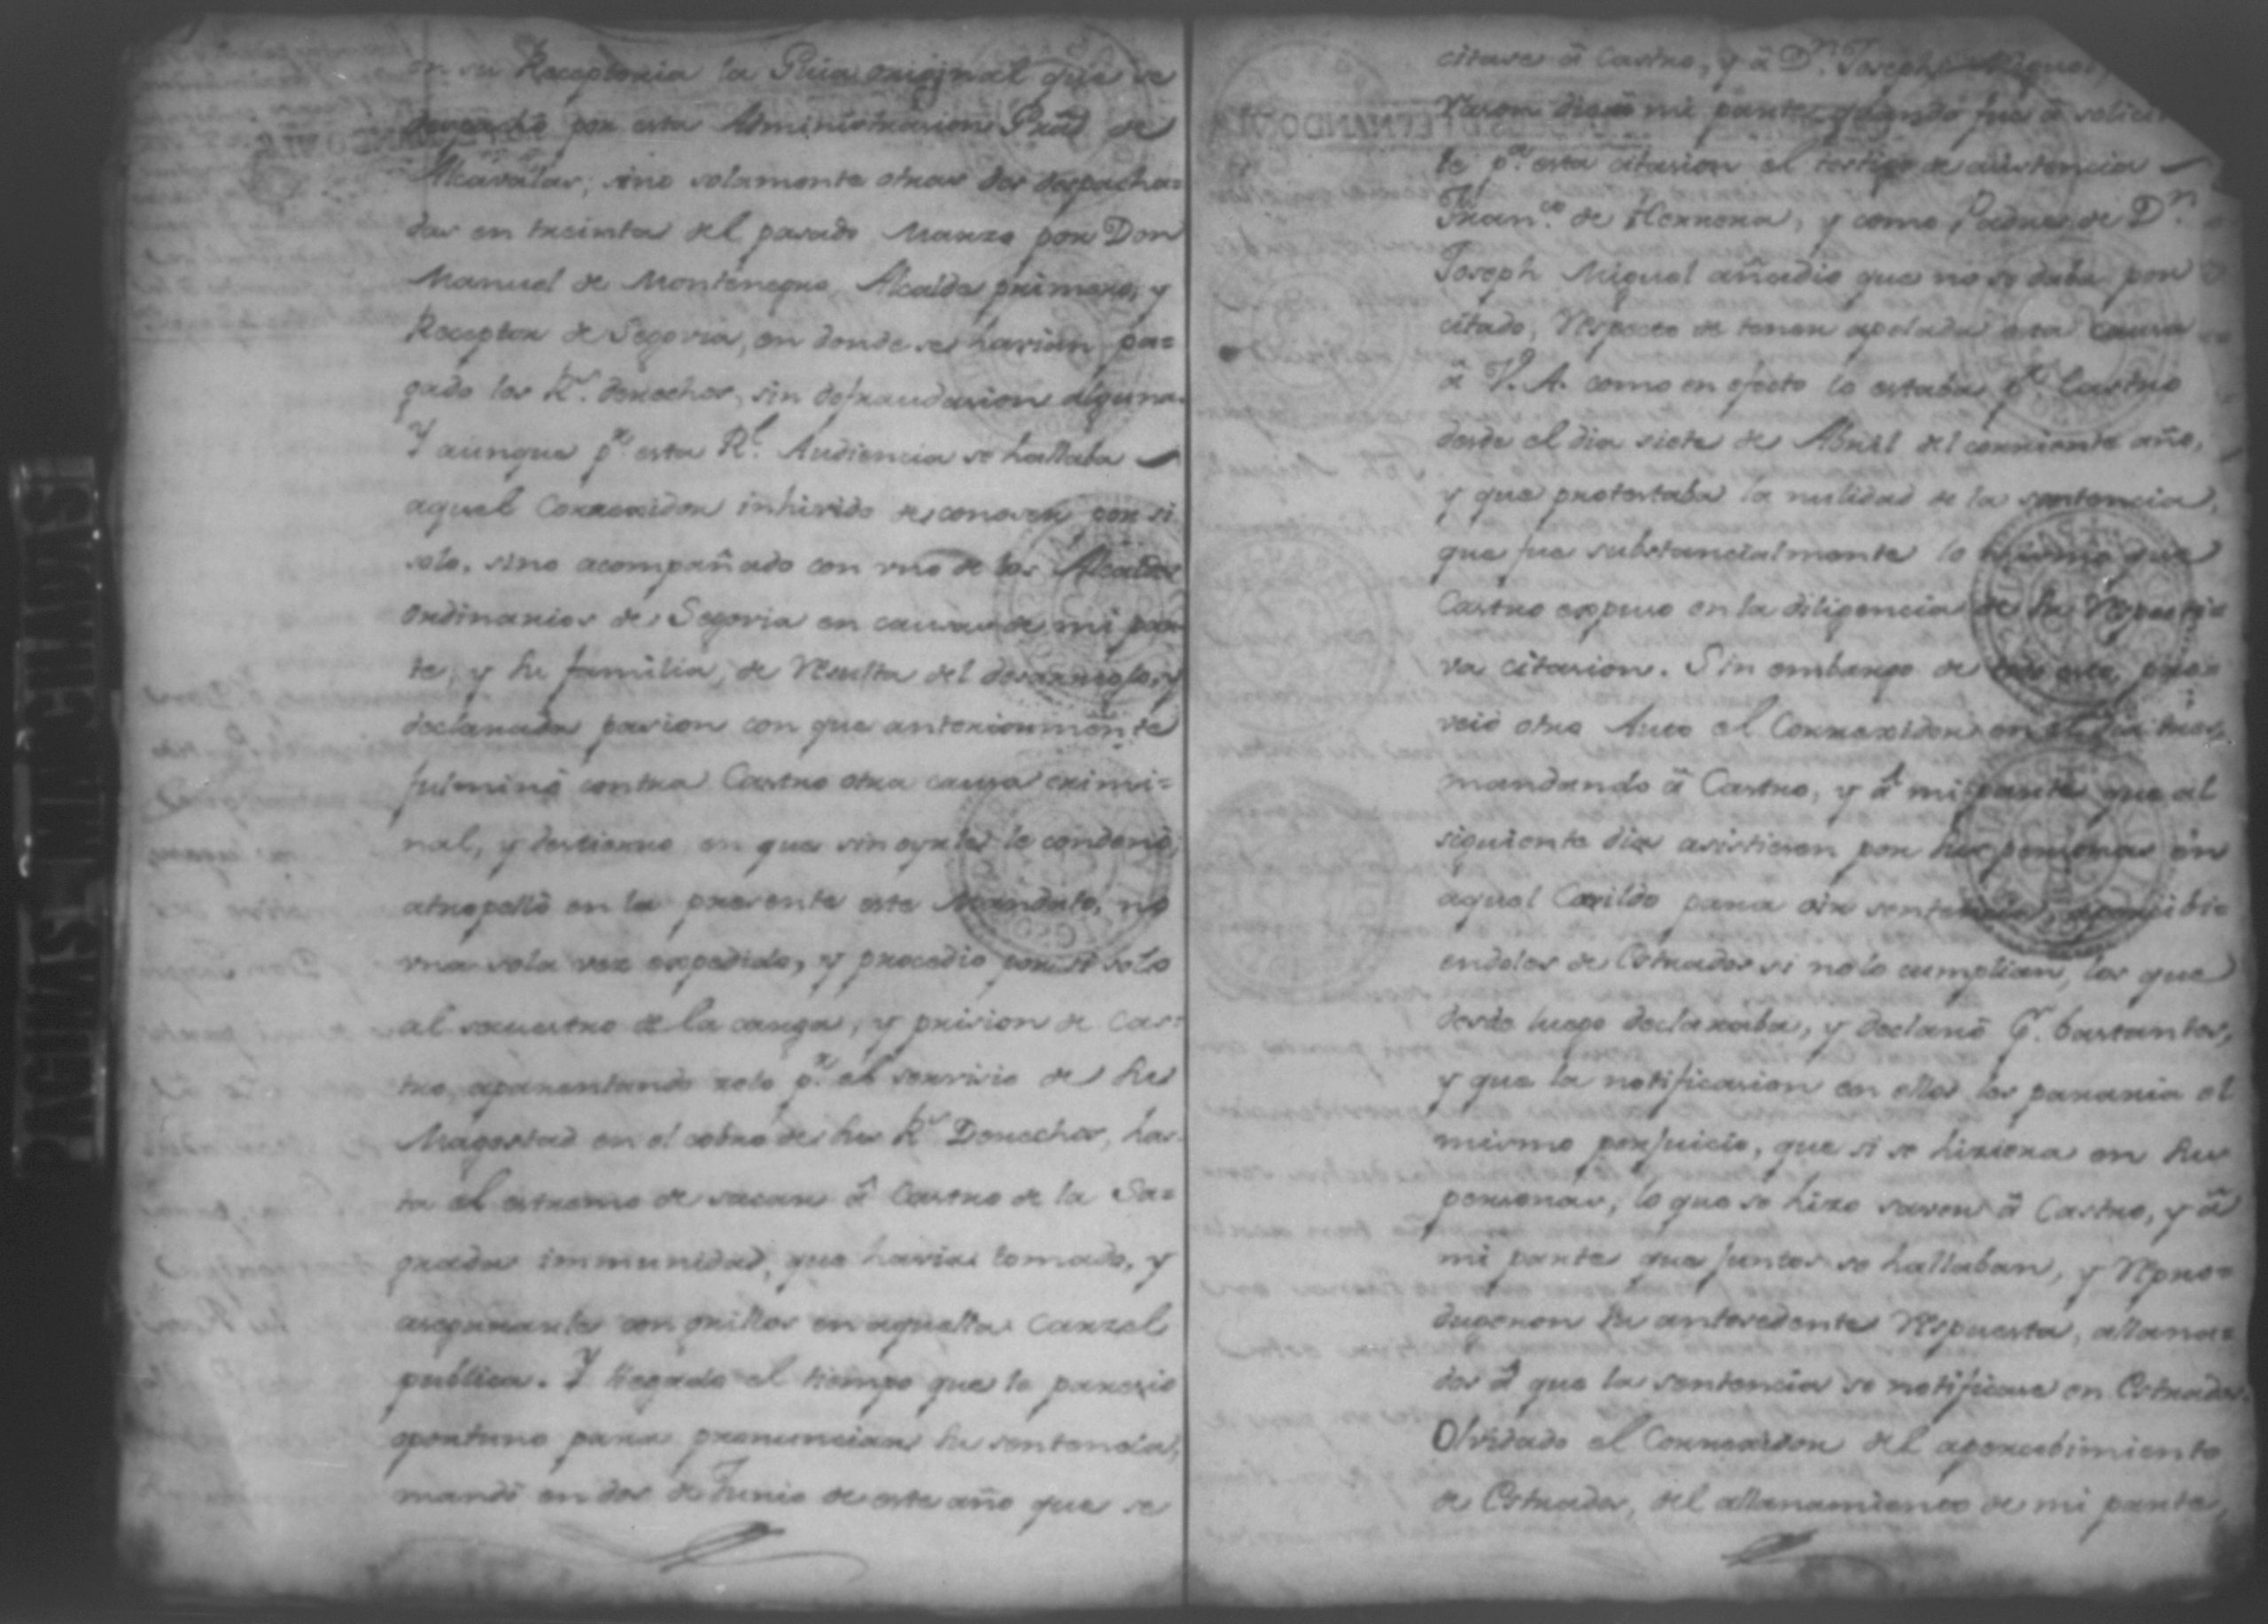 en su Receptoria la Guia original que se
despachó por esta Administracion Gräl de
Alcavalas; sino solamente otras dos despacha=
das en treinta del pasado Marzo por Don
Manuel de Montenegro Alcalde primero, y
Receptor de Segovia, en donde se havian pa=
gado los Rˢ. derechos, sin defraudacion alguna.
Y aunque pʳ esta Rˡ. Audiencia se hallaba
aquel Correxidor inhivido de conocer por si
solo, sino acompañado con uno de los Alcaldes
ordinarios de Segovia en causas de mi par
te, y su familia, de resulta del desarreglo, y
declarada pasion con que anteriormente
fulminó contra Castro otra causa crimi=
nal, y destierro en que sin oyrle le condenó,
atropelló en la presente este Mandato, no
una sola vez expedido, y procedio por si solo
al sequestro de la carga, y prision de Cas=
tro, aparentando zelo pʳ el servicio de su
Magestad en el cobro de sus Rˢ Derechos, has
ta el estremo de sacar â Castro de la Sa=
grada immunidad, que havia tomado, y
asegurarle con grillos en aquella Carzel
publica. Y llegado el tiempo que le parecio
oportuno para pronunciar su sentencia,
mandó en dos de Junio de este año que se
citase â Castro, y â Dⁿ. Joseph Miguel,
te pᵃ. esta citasion el testigo de asistencia
Franᶜᵒ. de Herrera, y como Padre de Dⁿ.
Joseph Miguel añadio que no se daba por
citado, respecto de tener apelada esta causa
â V. A. como en efecto lo estaba pʳ. Castro
desde el dia siete de Abril del corriente año,
y que protestaba la nulidad de la sentencia,
que fue substancialmente lo mismo que
Castro expuso en la diligencia de su respecti
va citasion. Sin embargo de todo esto, pro=
veió otro Auto el Correxidor en el dia tres,
mandando â Castro, y â mi parte que al
siguiente dia asistiesen por sus personas en
aquel Cavildo para oir sentencia, apercibi=
endoles de Estrados si no lo cumplian, los que
desde luego declaraba, y declaró pʳ. bastantes,
y que la notificasion en ellos les pararia el
mismo perjuicio, que si se hiziera en sus
personas, lo que se hizo saver â Castro, y â
mi parte que juntos se hallaban, y repro=
dugeron su antecedente respuesta, allana=
dos â que la sentencia se notificase en Estrados.
Olvidado el Correxidor del apercebimiento
de Estrados, del allanamiento de mi parte,